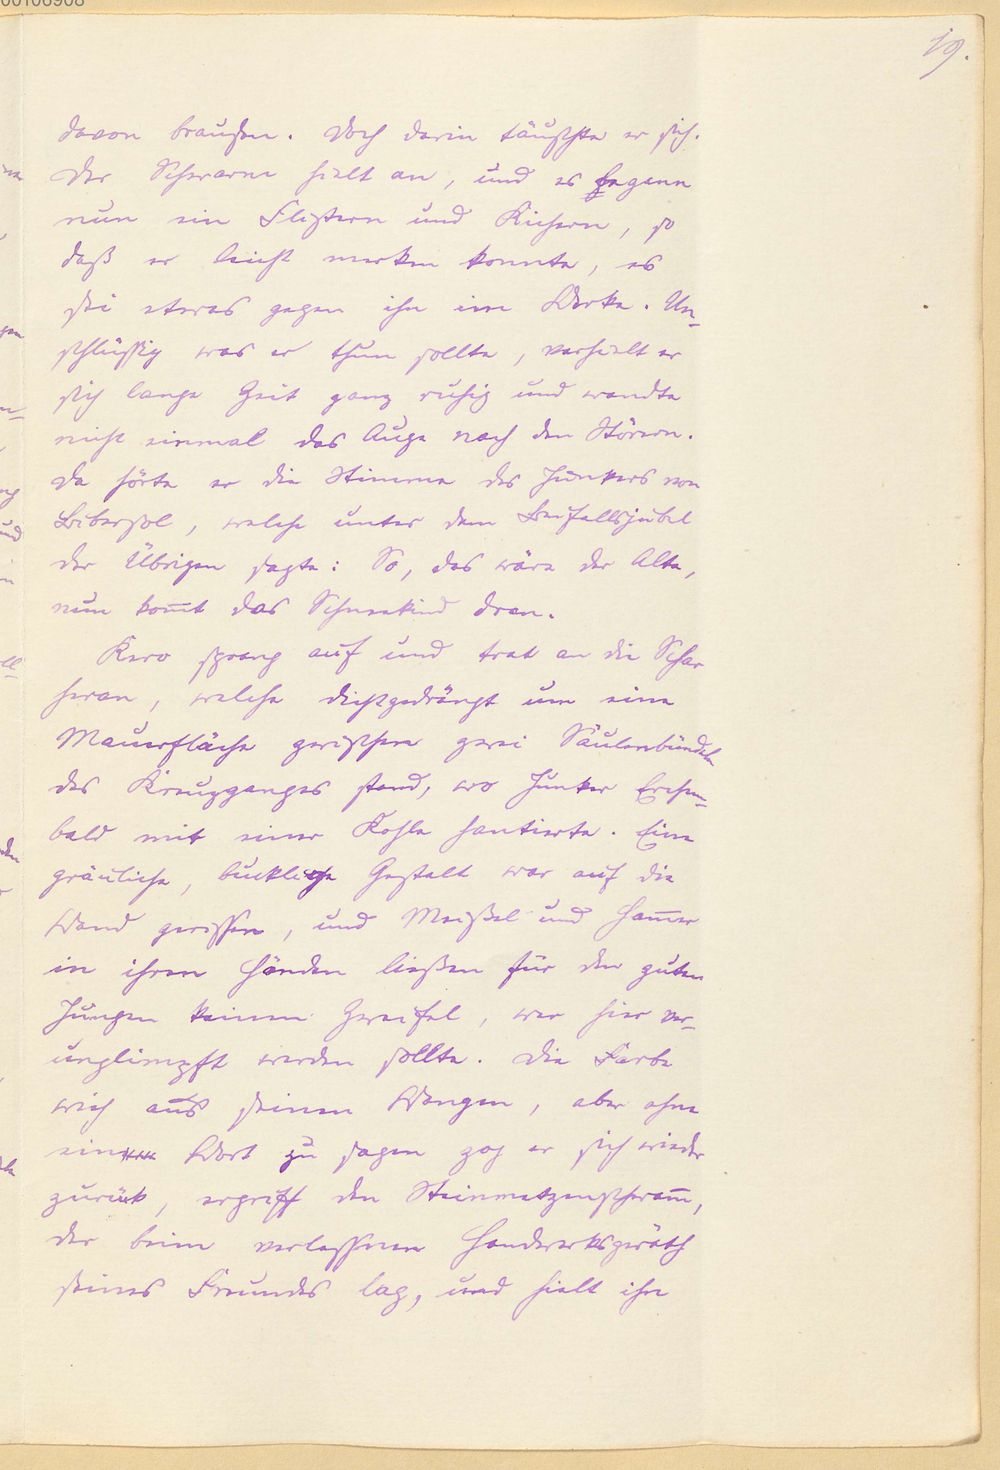 19.
davon brausen. Doch darin täuschte er sich.
Der Schwarm hielt an, und es begann
nun ein Flistern und Kichern, so
daß er leicht merken konnte, es
sei etwas gegen ihn im Werke. Un-
schlüssig was er thun sollte, verhielt er
sich lange Zeit ganz ruhig und wandte
nicht einmal das Auge nach den Störern.
Da hörte er die Stimme des Junkers von
Bibersol, welche unter dem Beifallsjubel
der Übrigen sagte: So, das wäre der Alte,
nun kom̄t das Schneekind dran.
Kero sprang auf und trat an die Schar
heran, welche dichtgedrängt um eine
Mauerfläche zwischen zwei Säulenbündeln
des Kreuzganges stand, wo Junker Erchen-
bald mit einer Kohle hantierte. Eine
gräuliche, bucklige Gestalt war auf die
Wand gerissen, und Meißel und Ham̄er
in ihren Händen ließen für den guten
Jungen keinen Zweifel, wer hier ver-
unglimpft werden sollte. Die Farbe
wich aus seinen Wangen, aber ohne
ein Wort zu sagen zog er sich wieder
zurück, ergriff den Steinmetzenschwam̄,
der beim verlassenen Handwerksgeräth
seines Freundes lag, und hielt ihn